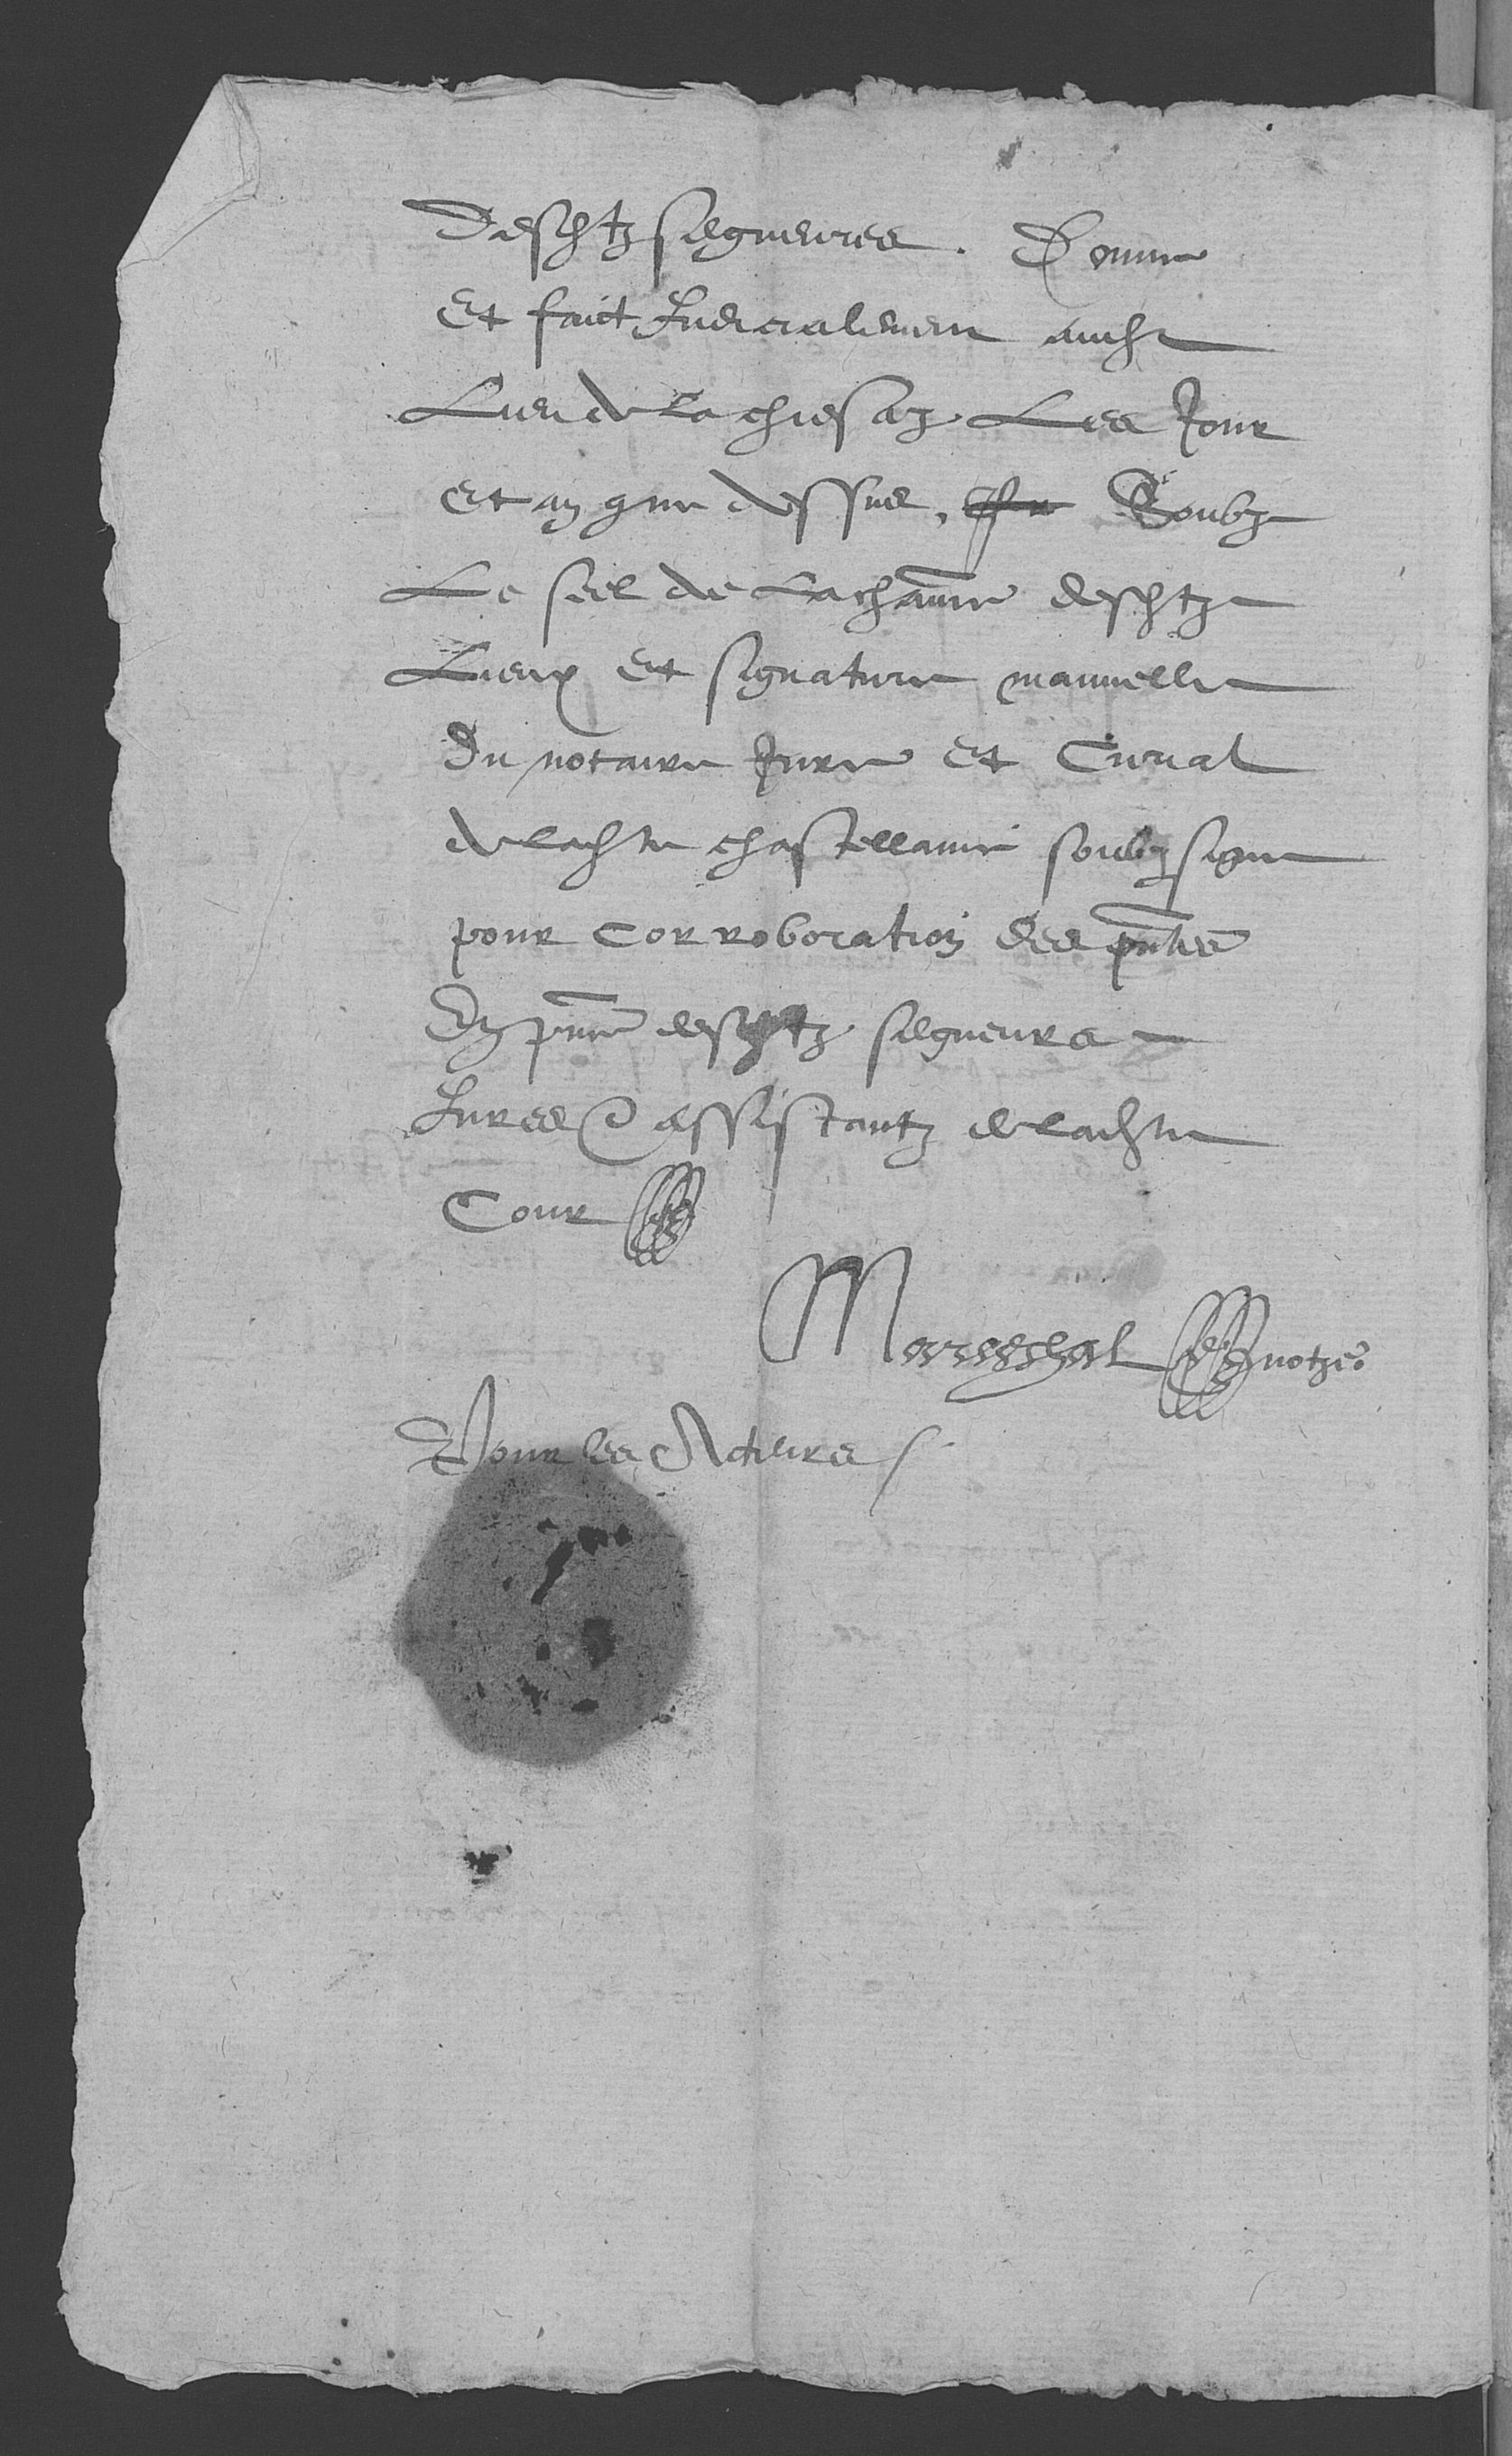 Desdtz seigneurs. Donne
Et faict Judicialement audt
Lieu de la chiesaz Les Jour
Et an que dessus, Soubz
Le seel de Lachãnie desdtz
Lieux Et signature manuelle
Du notaire Jure Et Curial
de ladte chastellanie soubzsigne
pour corroboration des pñtes
En pñce desdtz seigneurs
Jures & assistantz de ladte
Cour
Mareschal notre
Pour les Acteurs